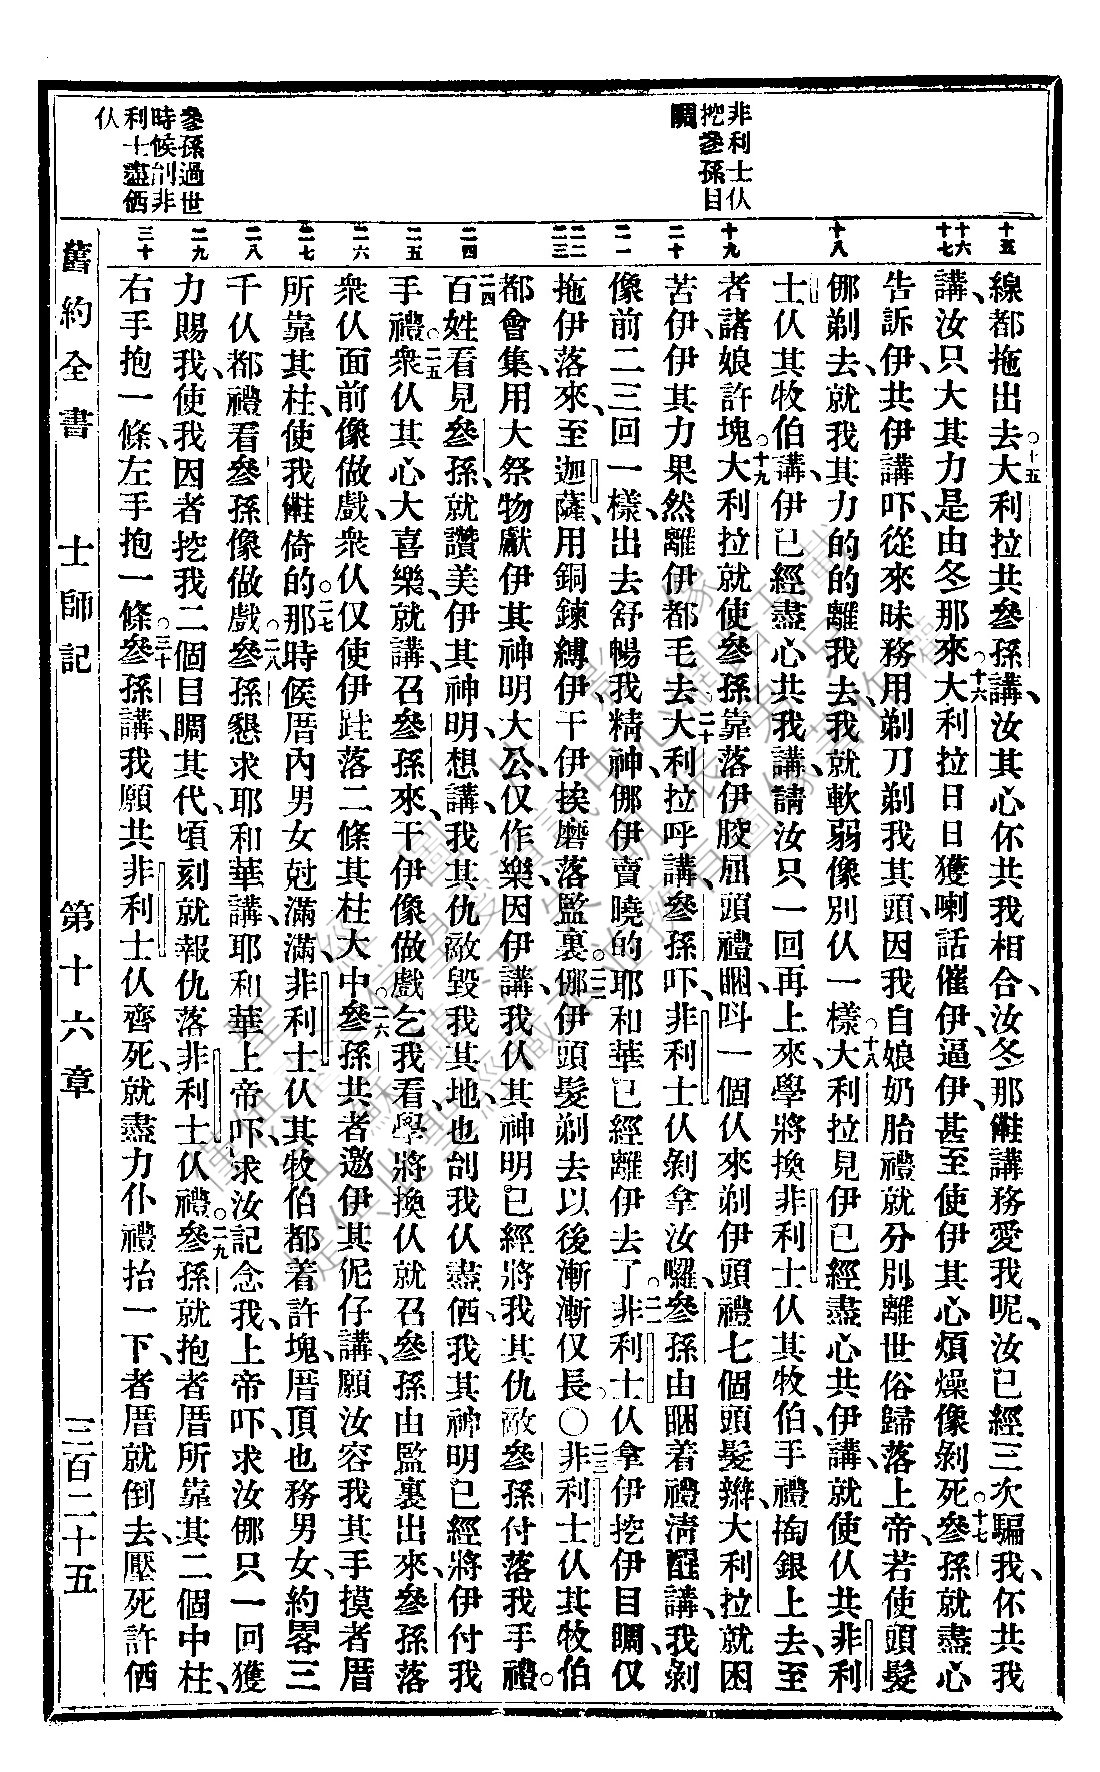 非利士仫
挖參孫目
睭
參孫過世
時候刣非
利士盡価
仫
十五
十六
十七
十八
十九
二十
二一
二二
二三
二四
二五
二六
二七
二八
二九
三十
線都拖出去○十五大利拉共參孫講、汝其心伓共我相合、汝冬那󠄁講務愛我呢、汝已經三次騙我、伓共我
講、汝只大其力是由冬那來○十六大利拉日日獲喇話催伊、逼伊、甚至使伊其心煩燥像剝死○十七參孫就盡心
告訴伊、共伊講吓、從來昧務用剃刀剃我其頭、因我自娘奶胎禮就分別離世俗歸落上帝、若使頭髮
挪剃去、就我其力的的離我去、我就軟弱像別仫一樣○十八大利拉見伊已經盡心共伊講、就使仫共非利
士仫其牧伯講、伊已經盡心共我講、請汝只一回再上來、學將換非利士仫其牧伯、手禮掏銀上去、至
者諸娘許塊○十九大利拉就使參孫靠落伊骹屈頭禮睏、呌一個仫來剃伊頭禮七個頭髮辮、大利拉就困
苦伊、伊其力果然離伊都毛去○二十大利拉呼講、參孫吓、非利士仫剝拿汝囉、參孫由睏着禮淸醒講、我剝
像前二三回一樣、出去舒暢我精神、挪伊賣曉的耶和華已經離伊去了○二一非利士仫拿伊挖伊目睭、仅
拖伊落來、至迦薩、用銅鍊縛伊、干伊挨磨落監裏○二二挪伊頭髮剃去以後漸漸仅長○二三非利士仫其牧伯
都會集、用大祭物獻伊其神明大公、仅作樂、因伊講、我仫其神明已經將我其仇敵參孫付落我手禮○
二四百姓看見參孫、就讚美伊其神明、想講、我其仇敵毀我其地、也刣我仫盡価、我其神明已經將伊付我
手禮○二五衆仫其心大喜樂、就講、召參孫來、干伊像做戲乞我看、學將換仫就召參孫由監裏出來、參孫落
衆仫面前像做戲、衆仫仅使伊跬落二條其柱大中○二六參孫共者邀伊其伲仔講、願汝容我其手摸者厝
所靠其柱、使我倚的○二七那時候厝內男女尅滿滿、非利士仫其牧伯都着許塊、厝頂也務男女、約畧三
千仫都禮看參孫像做戲○二八參孫懇求耶和華講、耶和華上帝吓、求汝記念我、上帝吓、求汝挪只一回獲
力賜我、使我因者挖我二個目睭其代、頃刻就報仇落非利士仫禮○二九參孫就抱者厝所靠其二個中柱、
右手抱一條、左手抱一條○三十參孫講、我願共非利士仫齊死、就盡力仆禮抬一下、者厝就倒去、壓死許価
舊約全書　士師記　第十六章　三百二十五